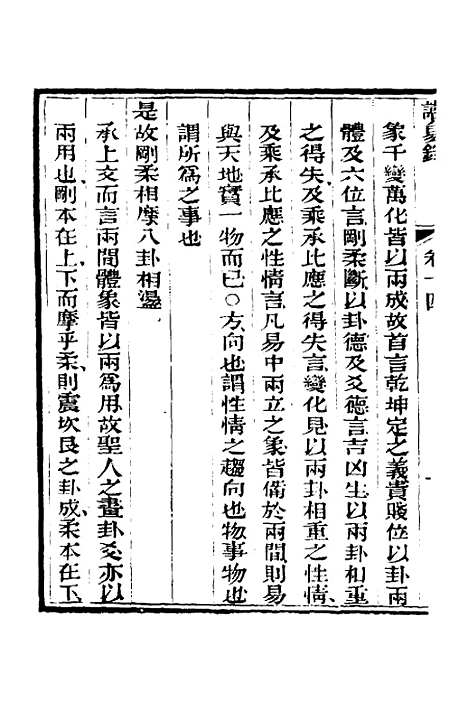 讀易錄 卷十四
象千變萬化皆以兩成故首言乾坤定之義貴賤位以卦兩
體及六位言剛柔斷以卦德及爻德言吉凶生以兩卦相重
之得失及乘承比應之得失言變化見以兩卦相重之性情
及乘承比應之性情言凡易中兩立之象皆備於兩間則易
與天地實一物而已○方向也謂性情之趨向也物事物也
謂所爲之事也
是故剛柔相摩八卦相盪
承上文而言兩間體象皆以兩爲用故聖人之畫卦爻亦以
兩用也剛本在上下而摩乎柔則震坎艮之卦成柔本在下